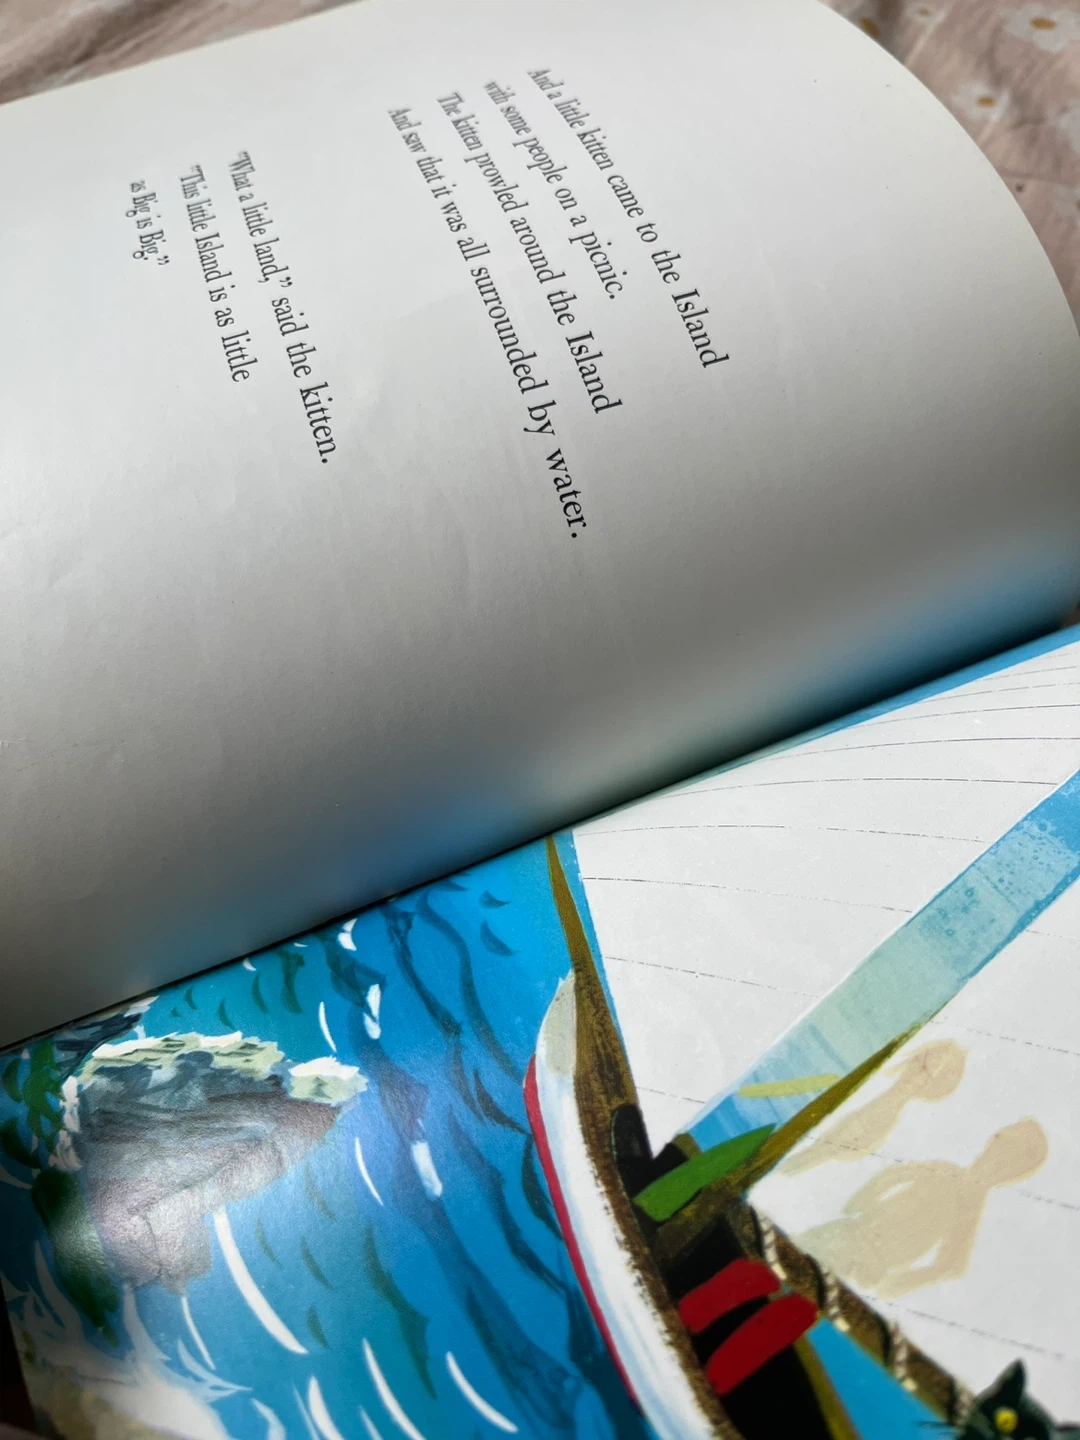 And a little kitten came to the Island
with some people on a picnic.
The kitten prowled around the Island
And saw that it was all surrounded by water.
"What a little land," said the kitten.
"This little Island is as little
as Big is Big."